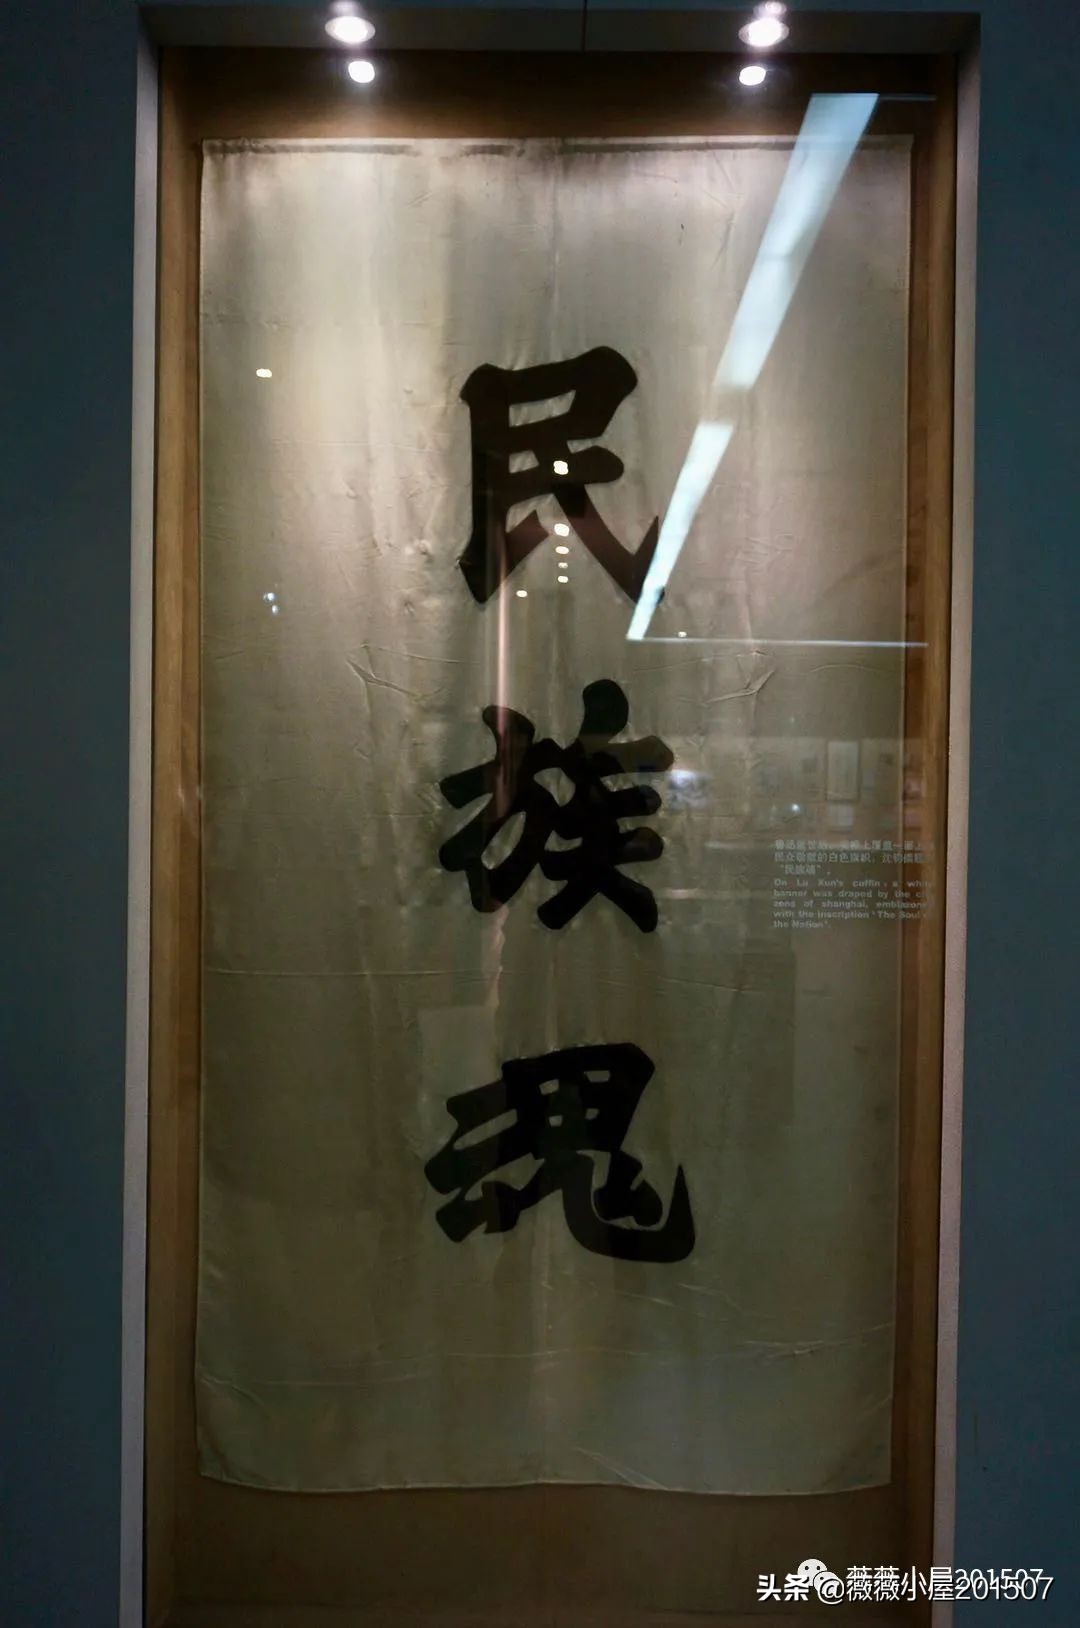 民族魂
鲁迅逝世后，灵柩上覆盖一面上
民众敬献的白色旗帜，沈钧儒题
“民族魂”。
On Lu Xun's coffin, a whit
banner was draped by the ci
zens of shanghai, emblazone
with the inscription 'The Soul
the Nation'.
薇薇小屋201507
头条 @薇薇小屋201507